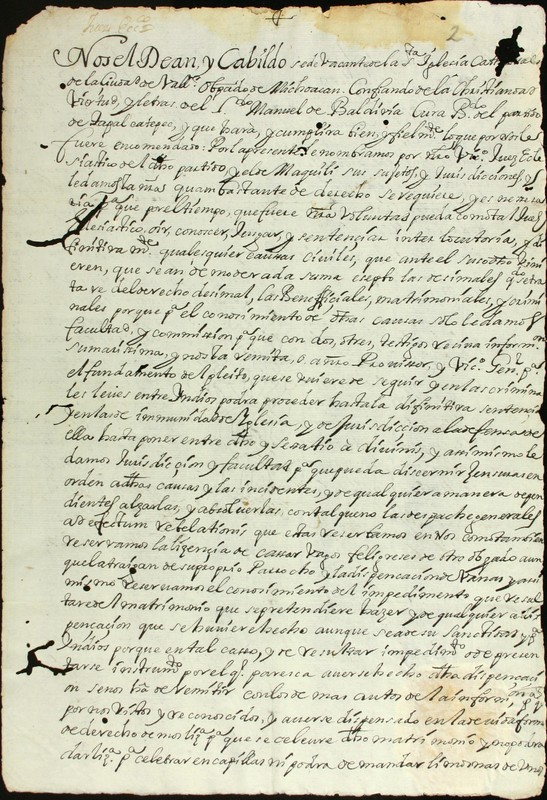 2
Nos el Dean, y Cabildo sede vacante de la S.ta Iglecia Cathedral
de la Ciud.d de Vall.d Obpado de Michoacan. Confiando de la Christiandad
Virtud, y letras del L.do Manuel de Baldivia Cura B.do del partido
de Zagalcatepec, y que hara, y cumplira bien, y fielm.te lo que por nos le
fuere encomendado: Por la presente le nombramos por nro Vic.o Juez Ecle
siastico del dho partido, y el de Maquili sus sujetos, y Jurisdiciones, y
le damos la mas quam bastante de derecho se requiere, y es nesesa
ria p.a que por el tiempo, que fuere nra voluntad pueda como tal Juez
Eclesiastico, oir, conocer, Juzgar, y sentenciar inter locutoria, y di
finitiva m.te qualesquier causas civiles, que ante el susodho vini
eren, que sean de moderada suma esepto las decimales q.do se tra
ta re del derecho desimal, las Beneficiales, matrimoniales, y crimi
nales porque p.a el conosimiento de otras causas solo le damos
facultad, y commission p.a que con dos, o tres, testigos reciva inform.on
sumarissima, y nos la remita, o a nro Provisor, y Vic.o Gen.l p.a
el fundamento del pleito, que se uviere de seguir y en las crimina
les leves entre Indios podra proceder hasta la difinitiva sentencia
y en las de immunidad de Iglesia, y de Jurisdiccion a la defensa de
ella hasta poner entre dho y sesatio a divinis, y assimismo le
damos Jurisdicion, y facultad p.a que pueda discernir zensuras en
orden a dhas causas y las incidentes, y de qualquiera manera depen
dientes alzarlas, y absolverlas, con tal que no las despache generales
ad efectum revelationis que estas reservamos en nos como tambien
reservamos la lizencia de casar vagos feligreses de otro obpado aun
que la traigan de su proprio Parrocho y la dispencacion de Vanas y assi
mismo reservamos el conosimiento del impedimento que resul
tare del matrimonio que se pretendiere hazer y de qualquier a dis
pencacion que se huviere hecho aunque sea de su Sanctidad, y p.a
Indios porque en tal casso, y de resultar impedim.to o de presen
tarse instrum.to por el q.l paresca averse hecho dha dispensaci
on se nos ha de remitir con los demas autos de la inform.on p.a q.
por nos vistos y reconocidos, y averse dispensado en la devida forma
de derecho demos liz.a p.a que se celebre dho matrimonio y no podra
dar liz.a p.a celebrar en capillas ni podra de mandar limosnas de